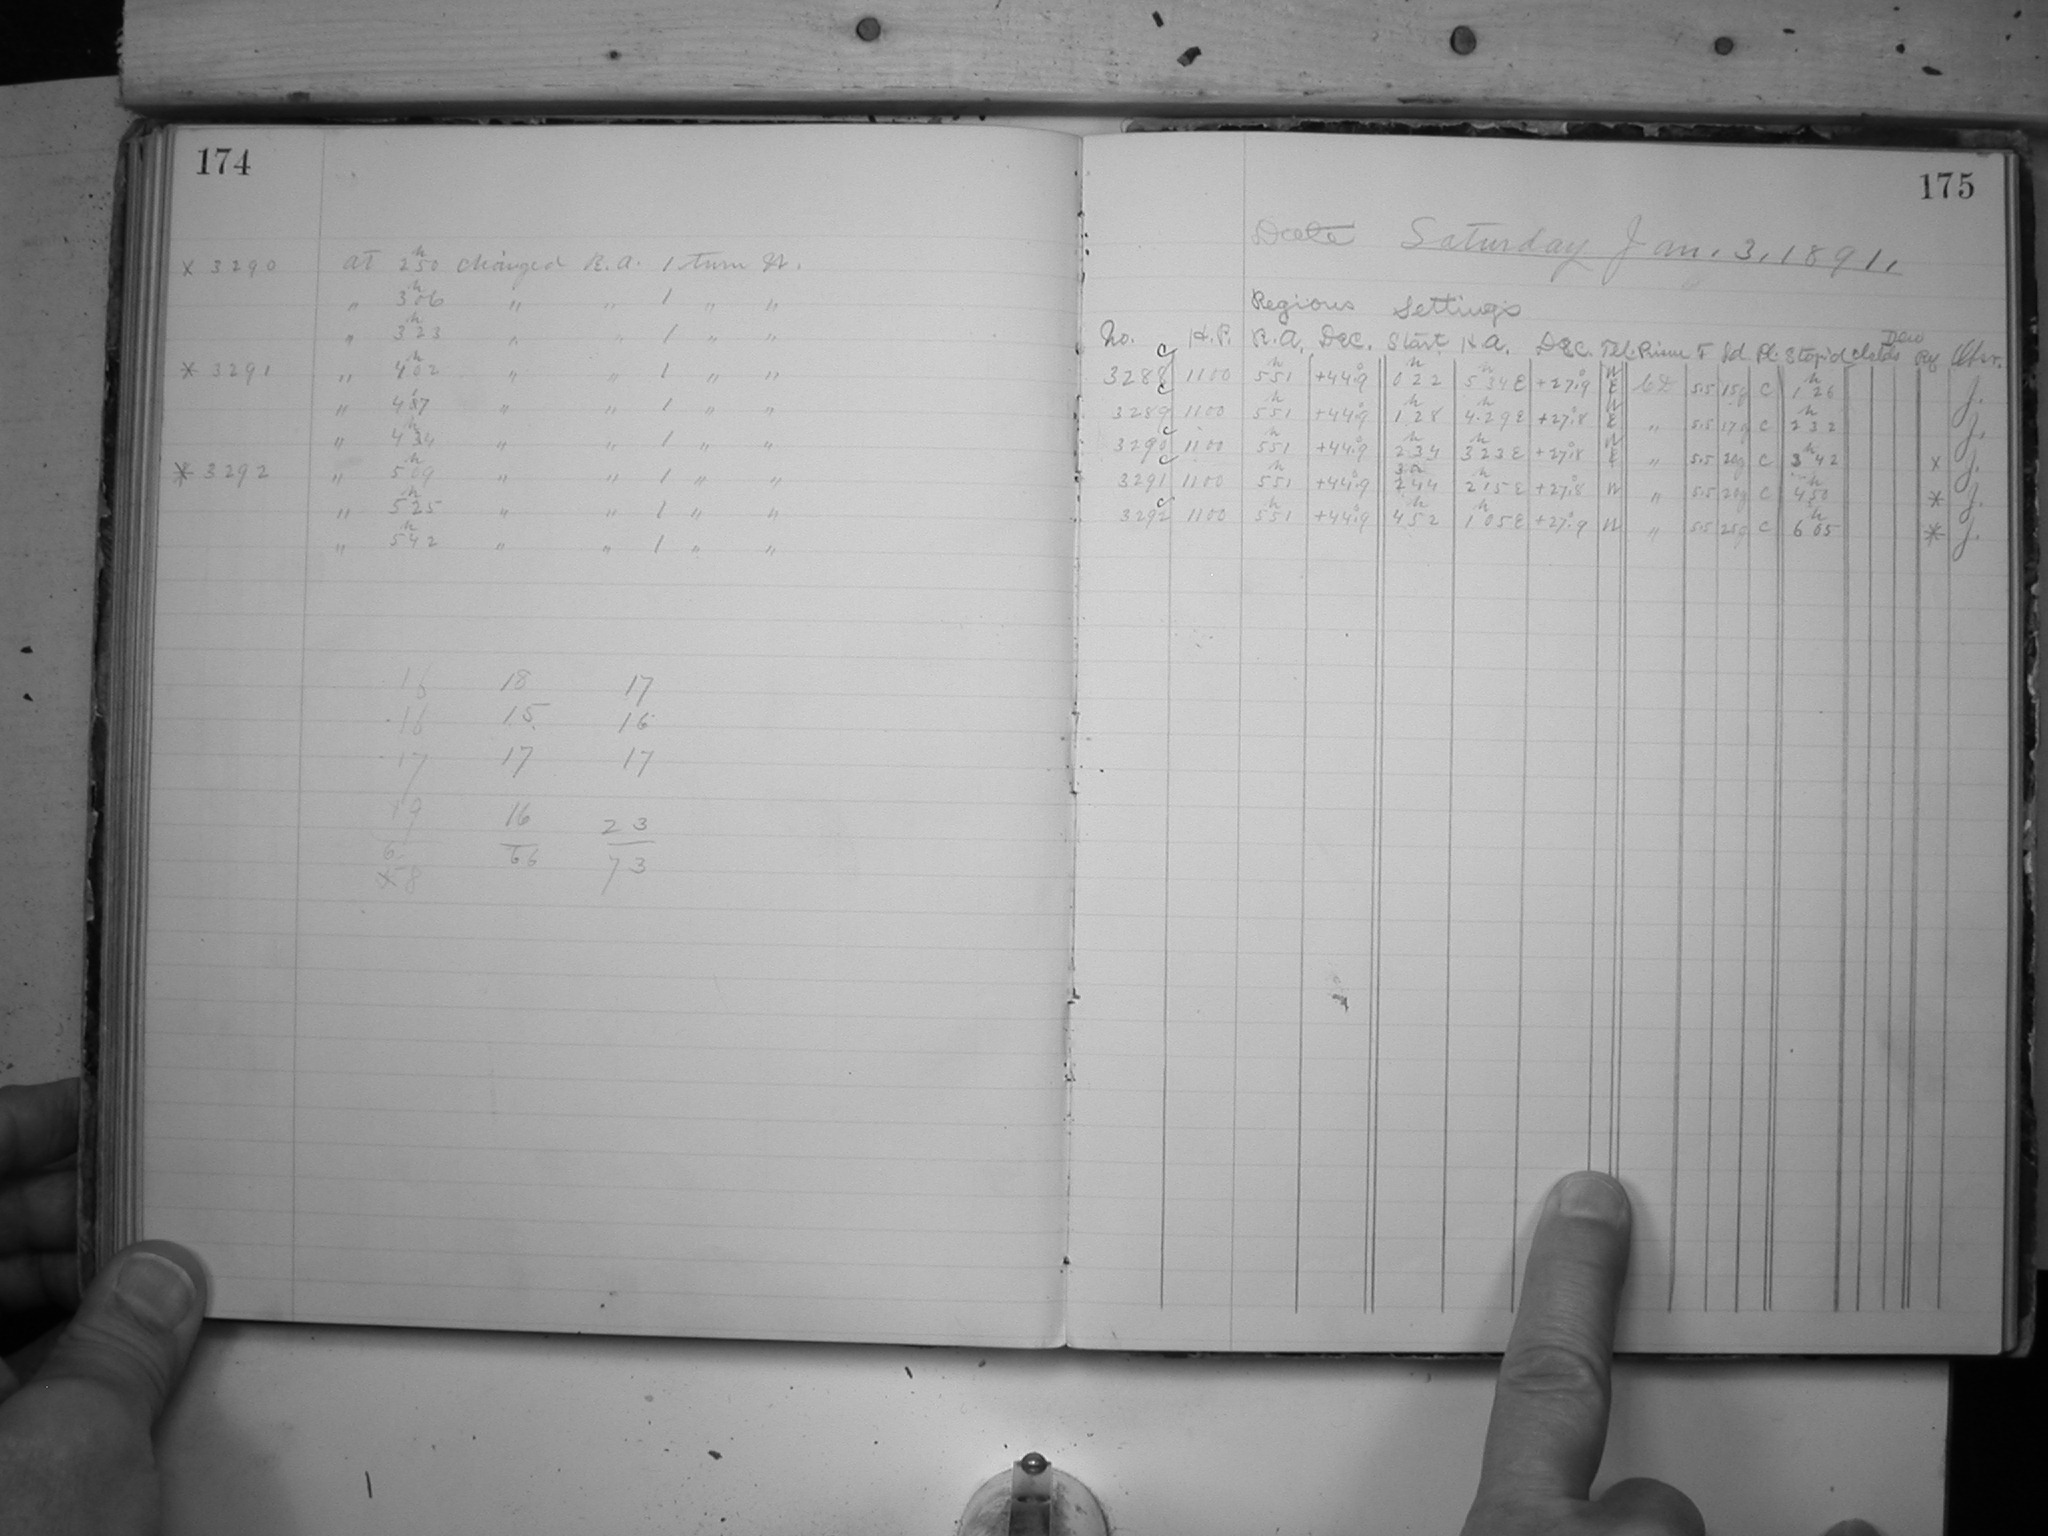 174
× 3290 at 2ʰ50 changed R.A. 1 turn W.
" 3ʰ06 " " 1 " "
" 3ʰ23 " " 1 " "
* 3291 " 4ʰ02 " " 1 " "
" " " 1 " "
" 4ʰ34 " " 1 " "
* 3292 " 5ʰ09 " " 1 " "
" 5ʰ25 " " 1 " "
" 5ʰ42 " " 1 " "
18 17
16 15 16
17 17 17
19 16 23
66 73
175
Date Saturday Jan. 3, 1891.
Regions Settings
No. H.P. R.A. Dec. Start H.A. Dec. Tel. Prism F Sd. Pl. Stop'd Clds Dew Rem Obsr.
3288 c 1100 5ʰ51 +44°.9 0ʰ22 5ʰ34E +27°.9 W E 5.5 15g C 1ʰ26 J.
3289 c 1100 5ʰ51 +44°.9 1ʰ28 4ʰ29E +27°.8 W E " 5.5 17g C 2ʰ32 J.
3290 c 1100 5ʰ51 +44°.9 2ʰ34 3ʰ23E +27°.8 W E " 5.5 20g C 3ʰ42 × J.
3291 c 1100 5ʰ51 +44°.9 3ʰ44 2ʰ15E +27°.8 W " 5.5 20g C 4ʰ50 * J.
3292 c 1100 5ʰ51 +44°.9 4ʰ52 1ʰ05E +27°.9 W " 5.5 25g C 6ʰ05 * J.